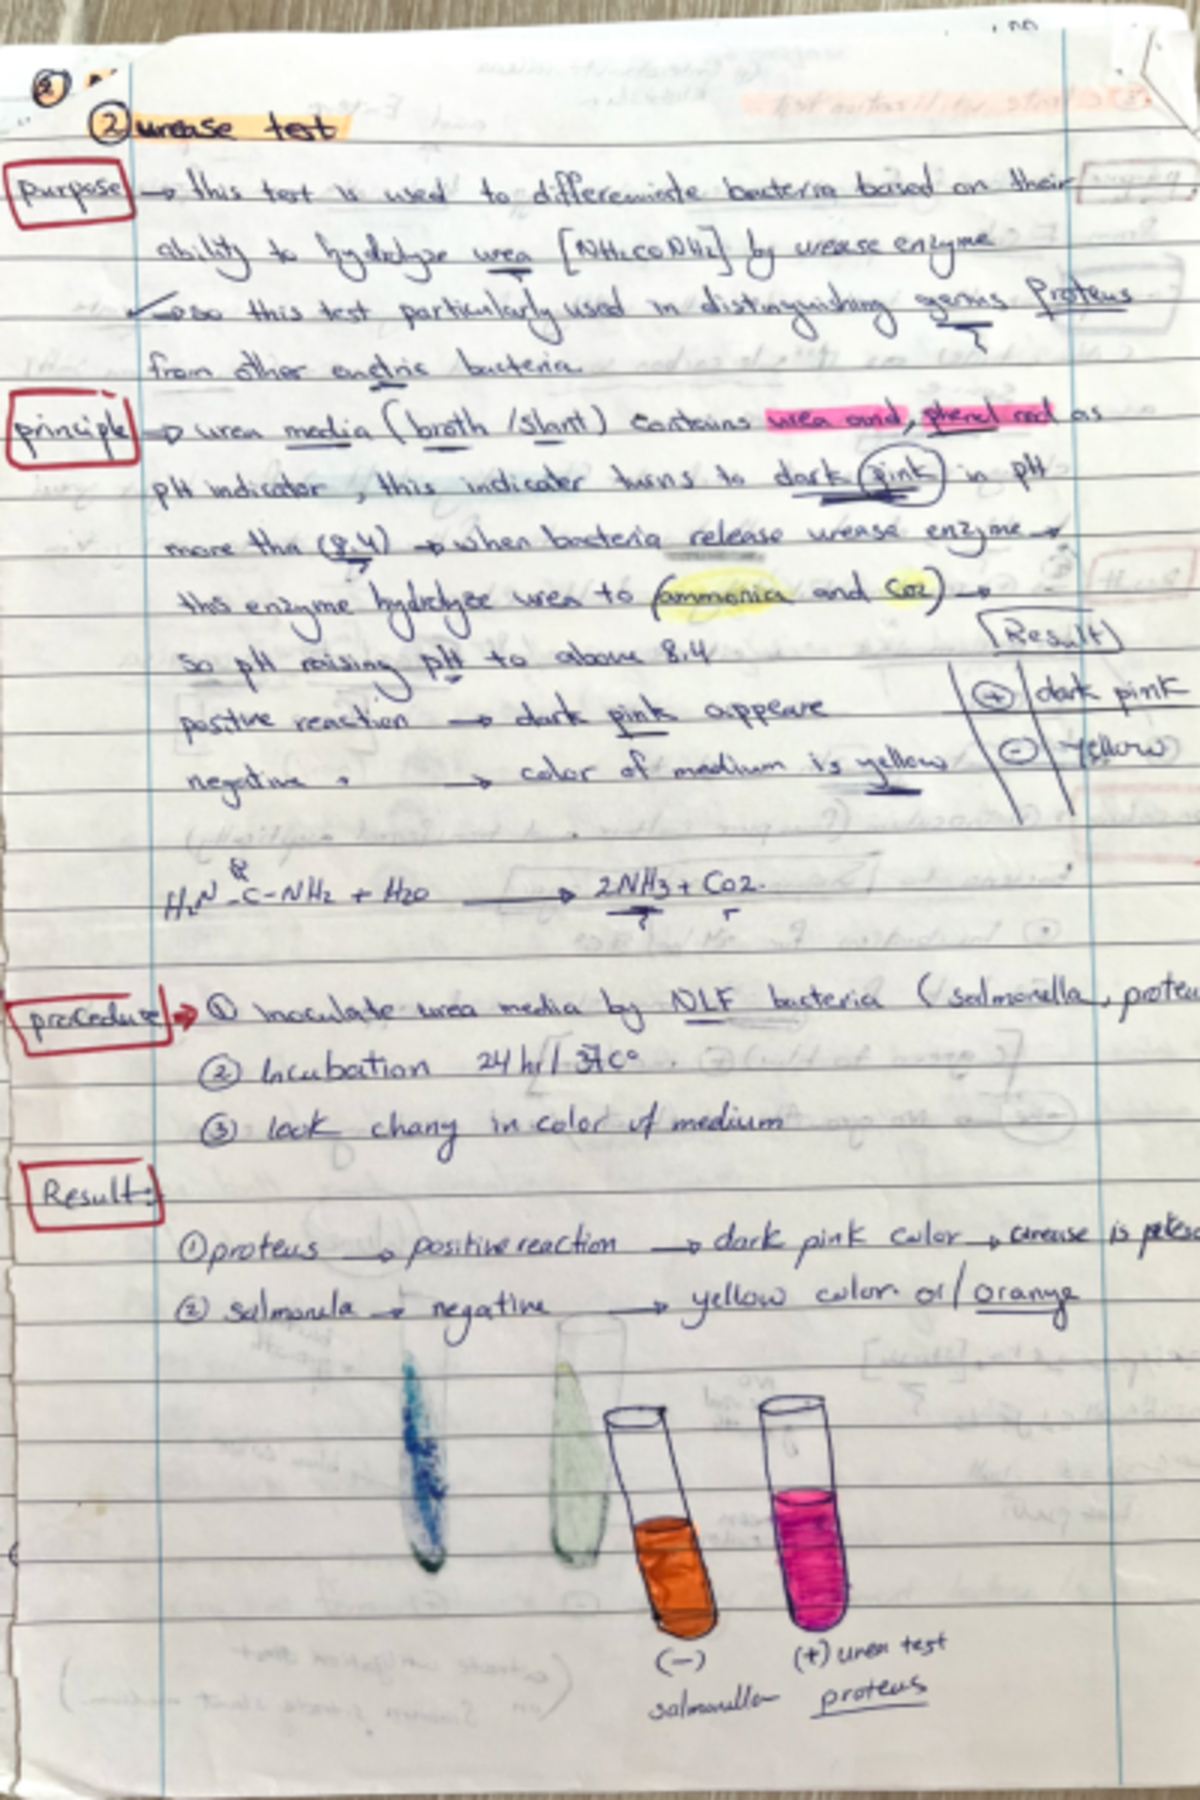 ② urease test
purpose → this test is used to differeniate bacteria based on their
ability to hydrolyze urea [NH2CONH2] by urease enzyme
→ so this test particularly used in distinguishing genus Proteus
from other enetric bacteria
principle → urea media (broth /slant) contains urea and, phenol red as
pH indicator, this indicater turns to dark pink in pH
more tha (8.4) → when bacteria release urease enzyme →
this enzyme hydrolyze urea to (ammonia and Co2) →
so pH raising pH to above 8.4
Result
positive reaction → dark pink appeare
+ dark pink
negative " → color of medium is yellow
- yellow
H2N-C-NH2 + H2O → 2NH3 + Co2.
O
procedure → ① Inoculate urea media by NLF bacteria (salmonella, proteu
② Incubation 24 hr / 37C°
③ look chang in color of medium
Result:
① proteus → positive reaction → dark pink color → urease is
② salmonela → negative → yellow color or / orange
(-) (+) urea test
salmonella proteus